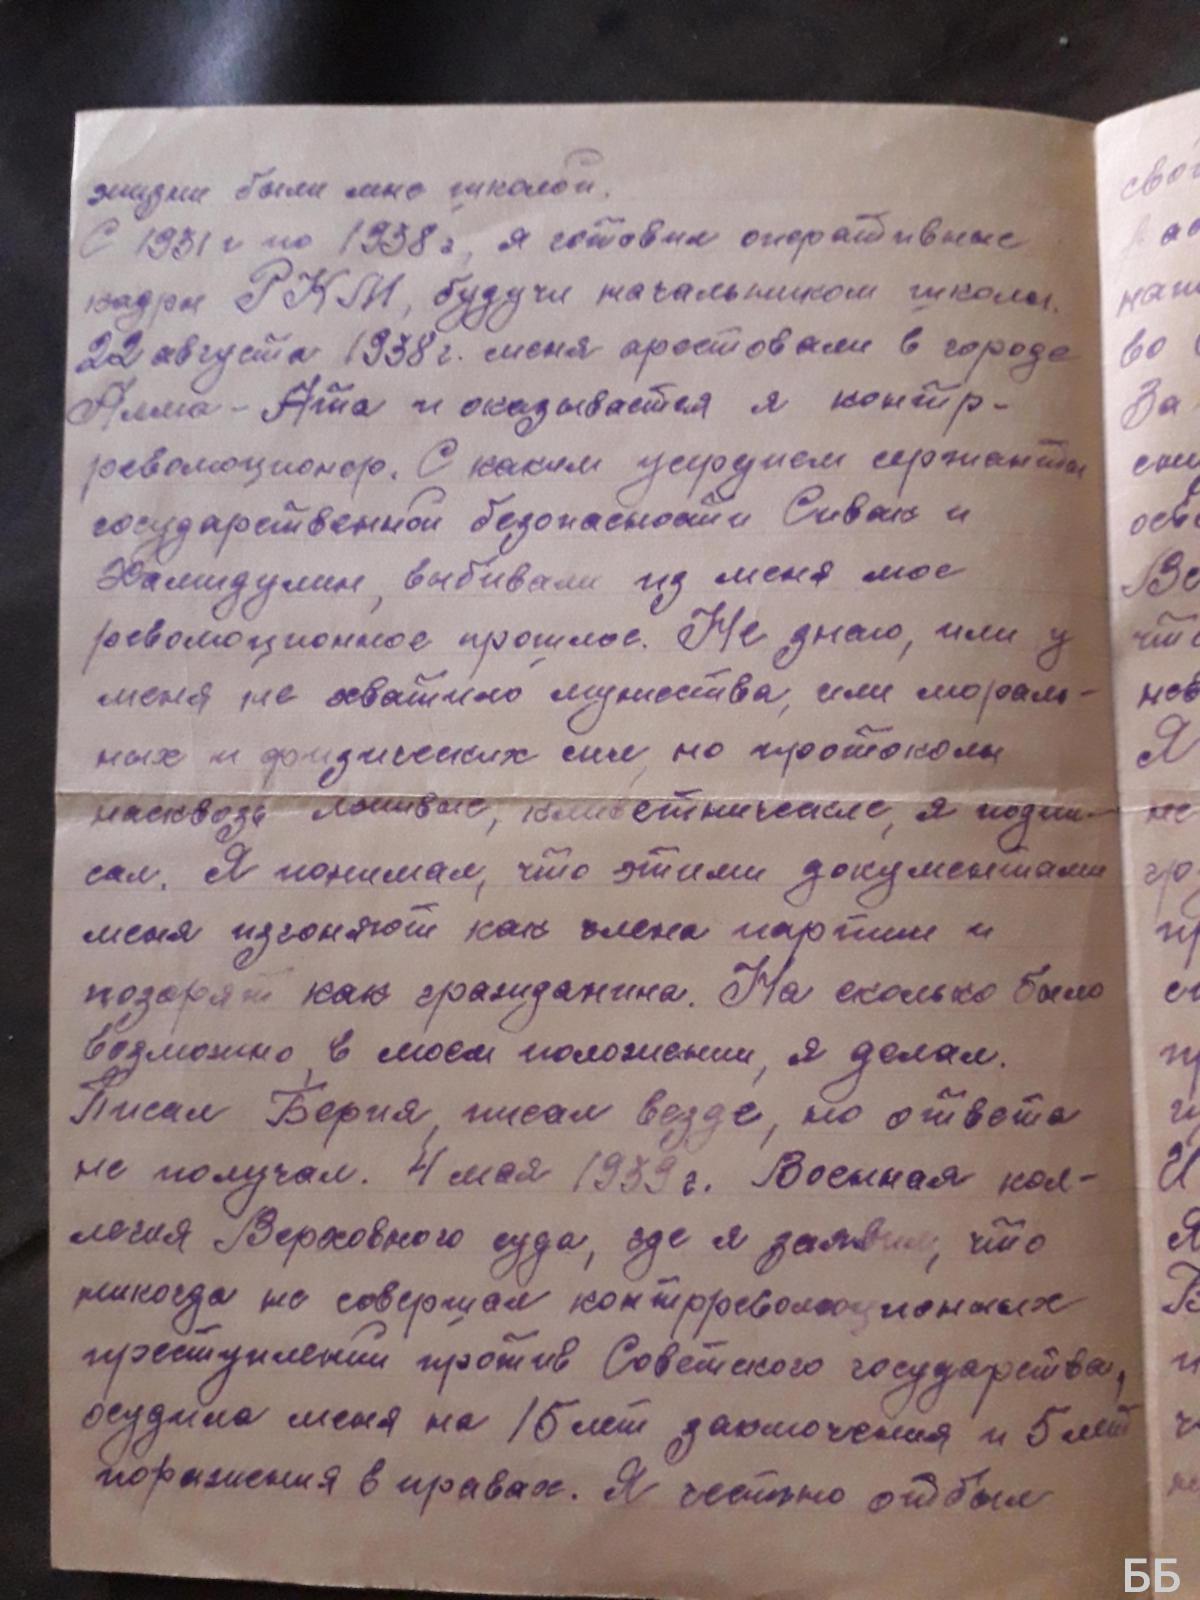 жизни были мне школой.
С 1931 г по 1938 г, я готовил оперативные
кадры РКМ, будучи начальником школы.
22 августа 1938 г. меня арестовали в городе
Алма-Ата и оказывается я контр-
революционер. С каким усердием сержанты
государственной безопасности Сивак и
Хамидулин, выбивали из меня мое
революционное прошлое. Не знаю, или у
меня не хватило мужества, или мораль-
ных и физических сил, но протоколы
насквозь лживые, клеветнические, я подпи-
сал. Я понимал, что этими документами
меня изгоняют как члена партии и
позорят как гражданина. На сколько было
возможно, в моем положении, я делал.
Писал Берия, писал везде, но ответа
не получал. 4 мая 1939 г. Военная кол-
легия Верховного суда, где я заявил, что
никогда не совершал контрреволюционных
преступлений против Советского государства,
осудила меня на 15 лет заключения и 5 лет
поражения в правах. Я честно отбыл
во
За
Я
не
ББ